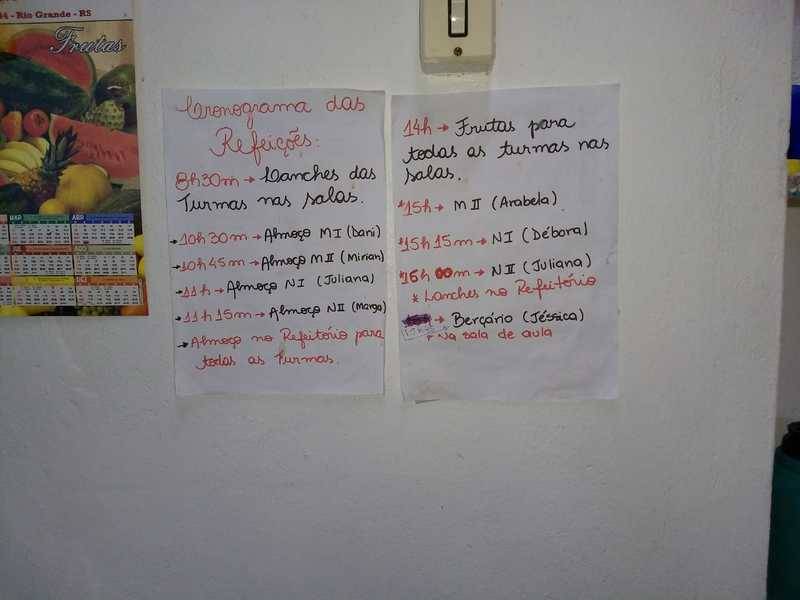 - Rio Grande - RS
Frutas
Cronograma das
Refeições:
8h30m → Lanches das
Turmas nas salas.
→ 10h30m → Almoço MI (Dani)
→ 10h45m → Almoço MII (Mirian)
→ 11h → Almoço NI (Juliana)
→ 11h15m → Almoço NII (Marga)
→ Almoço no Refeitório para
todas as turmas.
14h → Frutas para
todas as turmas nas
salas.
*15h → MII (Arabela)
*15h15m → NI (Débora)
*16h00m → NII (Juliana)
* Lanches no Refeitório
→ Berçário (Jéssica)
Na sala de aula